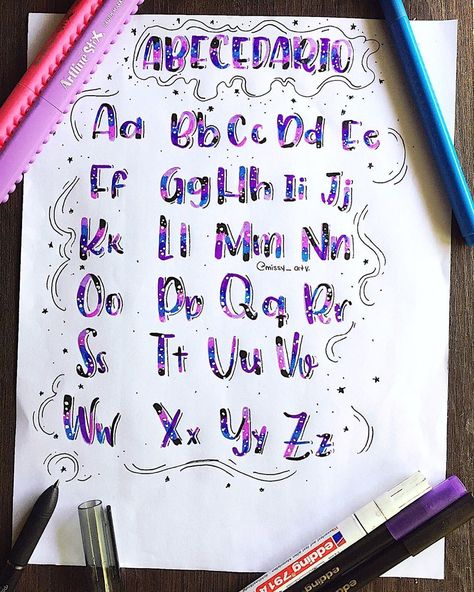 ABECEDARIO
Aa Bb Cc Dd Ee
Ff Gg Hh Ii Jj
Kk Ll Mm Nn
@missy_arty
Oo Pp Qq Rr
Ss Tt Uu Vv
Ww Xx Yy Zz
Artline Stix
edding 791